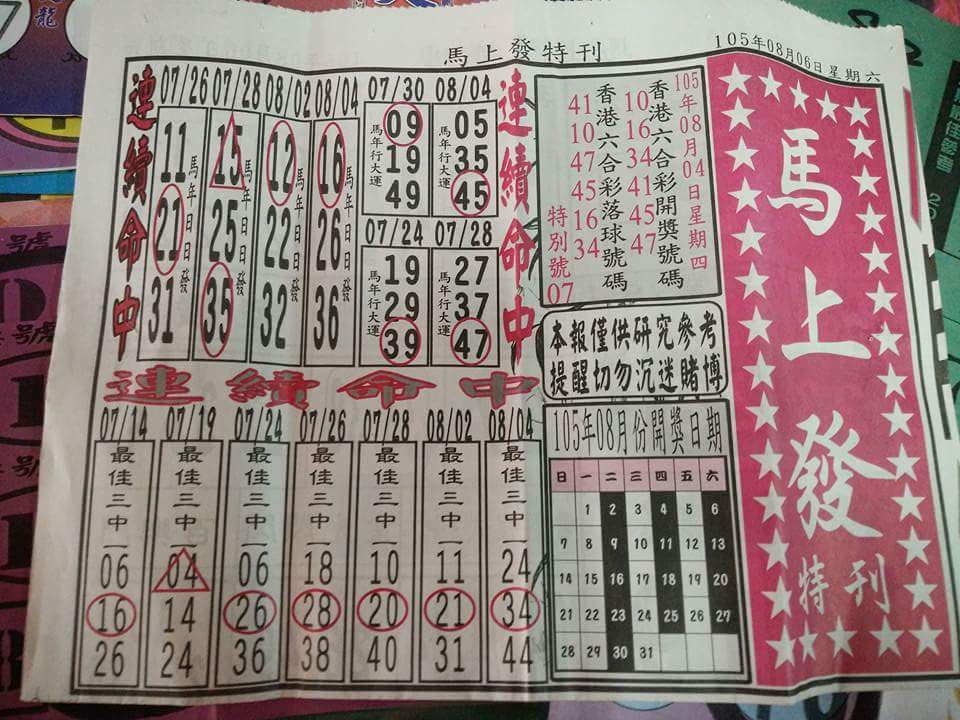 馬上發特刊
105年08月06日星期六
連續命中
07/26 07/28 08/02 08/04
11 21 31 馬年日日發
15 25 35 馬年日日發
12 22 32 馬年日日發
16 26 36 馬年日日發
07/30 08/04
馬年行大運 09 19 49
馬年行大運 05 35 45
07/24 07/28
馬年行大運 19 29 39
馬年行大運 27 37 47
連續命中
105年08月04日星期四
香港六合彩開獎號碼
10 16 34 41 45 47
香港六合彩落球號碼
41 10 47 45 16 34
特別號 07
本報僅供研究參考
提醒切勿沉迷賭博
連續命中
07/14 07/19 07/24 07/26 07/28 08/02 08/04
最佳三中一 06 16 26
最佳三中一 04 14 24
最佳三中一 06 26 36
最佳三中一 18 28 38
最佳三中一 10 20 40
最佳三中一 11 21 31
最佳三中一 24 34 44
105年08月份開獎日期
日 一 二 三 四 五 六
1 2 3 4 5 6
7 8 9 10 11 12 13
14 15 16 17 18 19 20
21 22 23 24 25 26 27
28 29 30 31
馬上發
特刊
龍
號
號